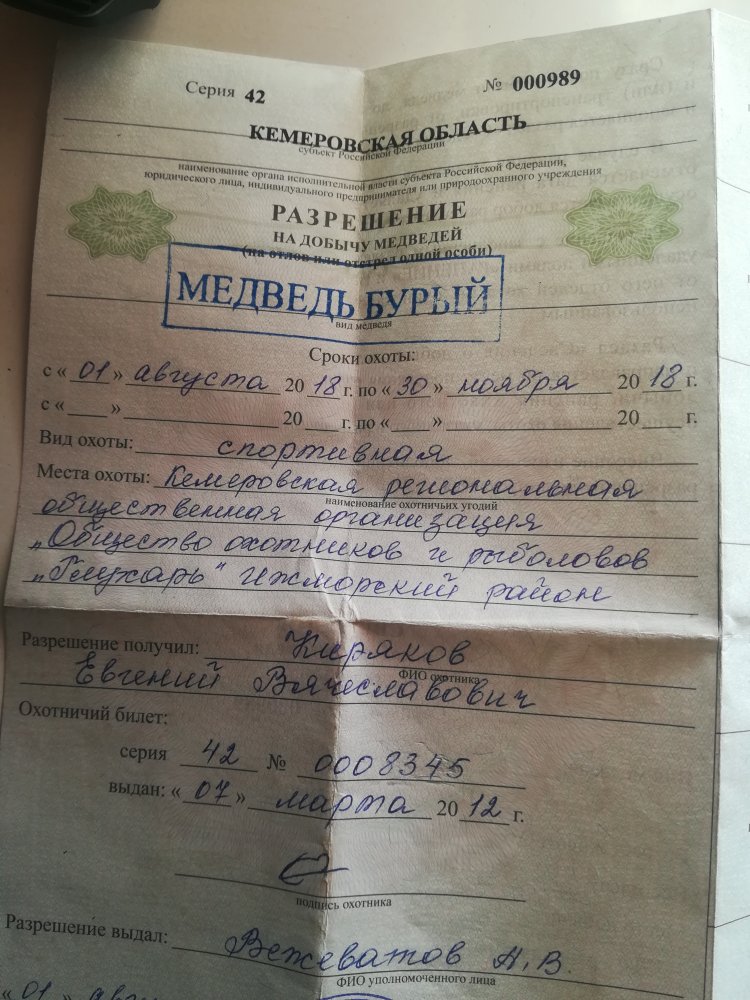 Серия 42 № 000989
КЕМЕРОВСКАЯ ОБЛАСТЬ
субъект Российской Федерации
наименование органа исполнительной власти субъекта Российской Федерации,
юридического лица, индивидуального предпринимателя или природоохранного учреждения
РАЗРЕШЕНИЕ
НА ДОБЫЧУ МЕДВЕДЕЙ
(на отлов или отстрел одной особи)
МЕДВЕДЬ БУРЫЙ
вид медведя
Сроки охоты:
с « 01 » августа 20 18 г. по « 30 » ноября 20 18 г.
с « ___ » ___ 20 ___ г. по « ___ » ___ 20 ___ г.
Вид охоты: спортивная
Места охоты: Кемеровская региональная
наименование охотничьих угодий
общественная организация
„Общество охотников и рыболовов
„Глухарь" Ижморский район
Разрешение получил: Киряков
ФИО охотника
Евгений Вячеславович
Охотничий билет:
серия 42 № 0008345
выдан: « 07 » марта 20 12 г.
подпись охотника
Разрешение выдал: Вежеватов А.В.
ФИО уполномоченного лица
« 01 » авгус